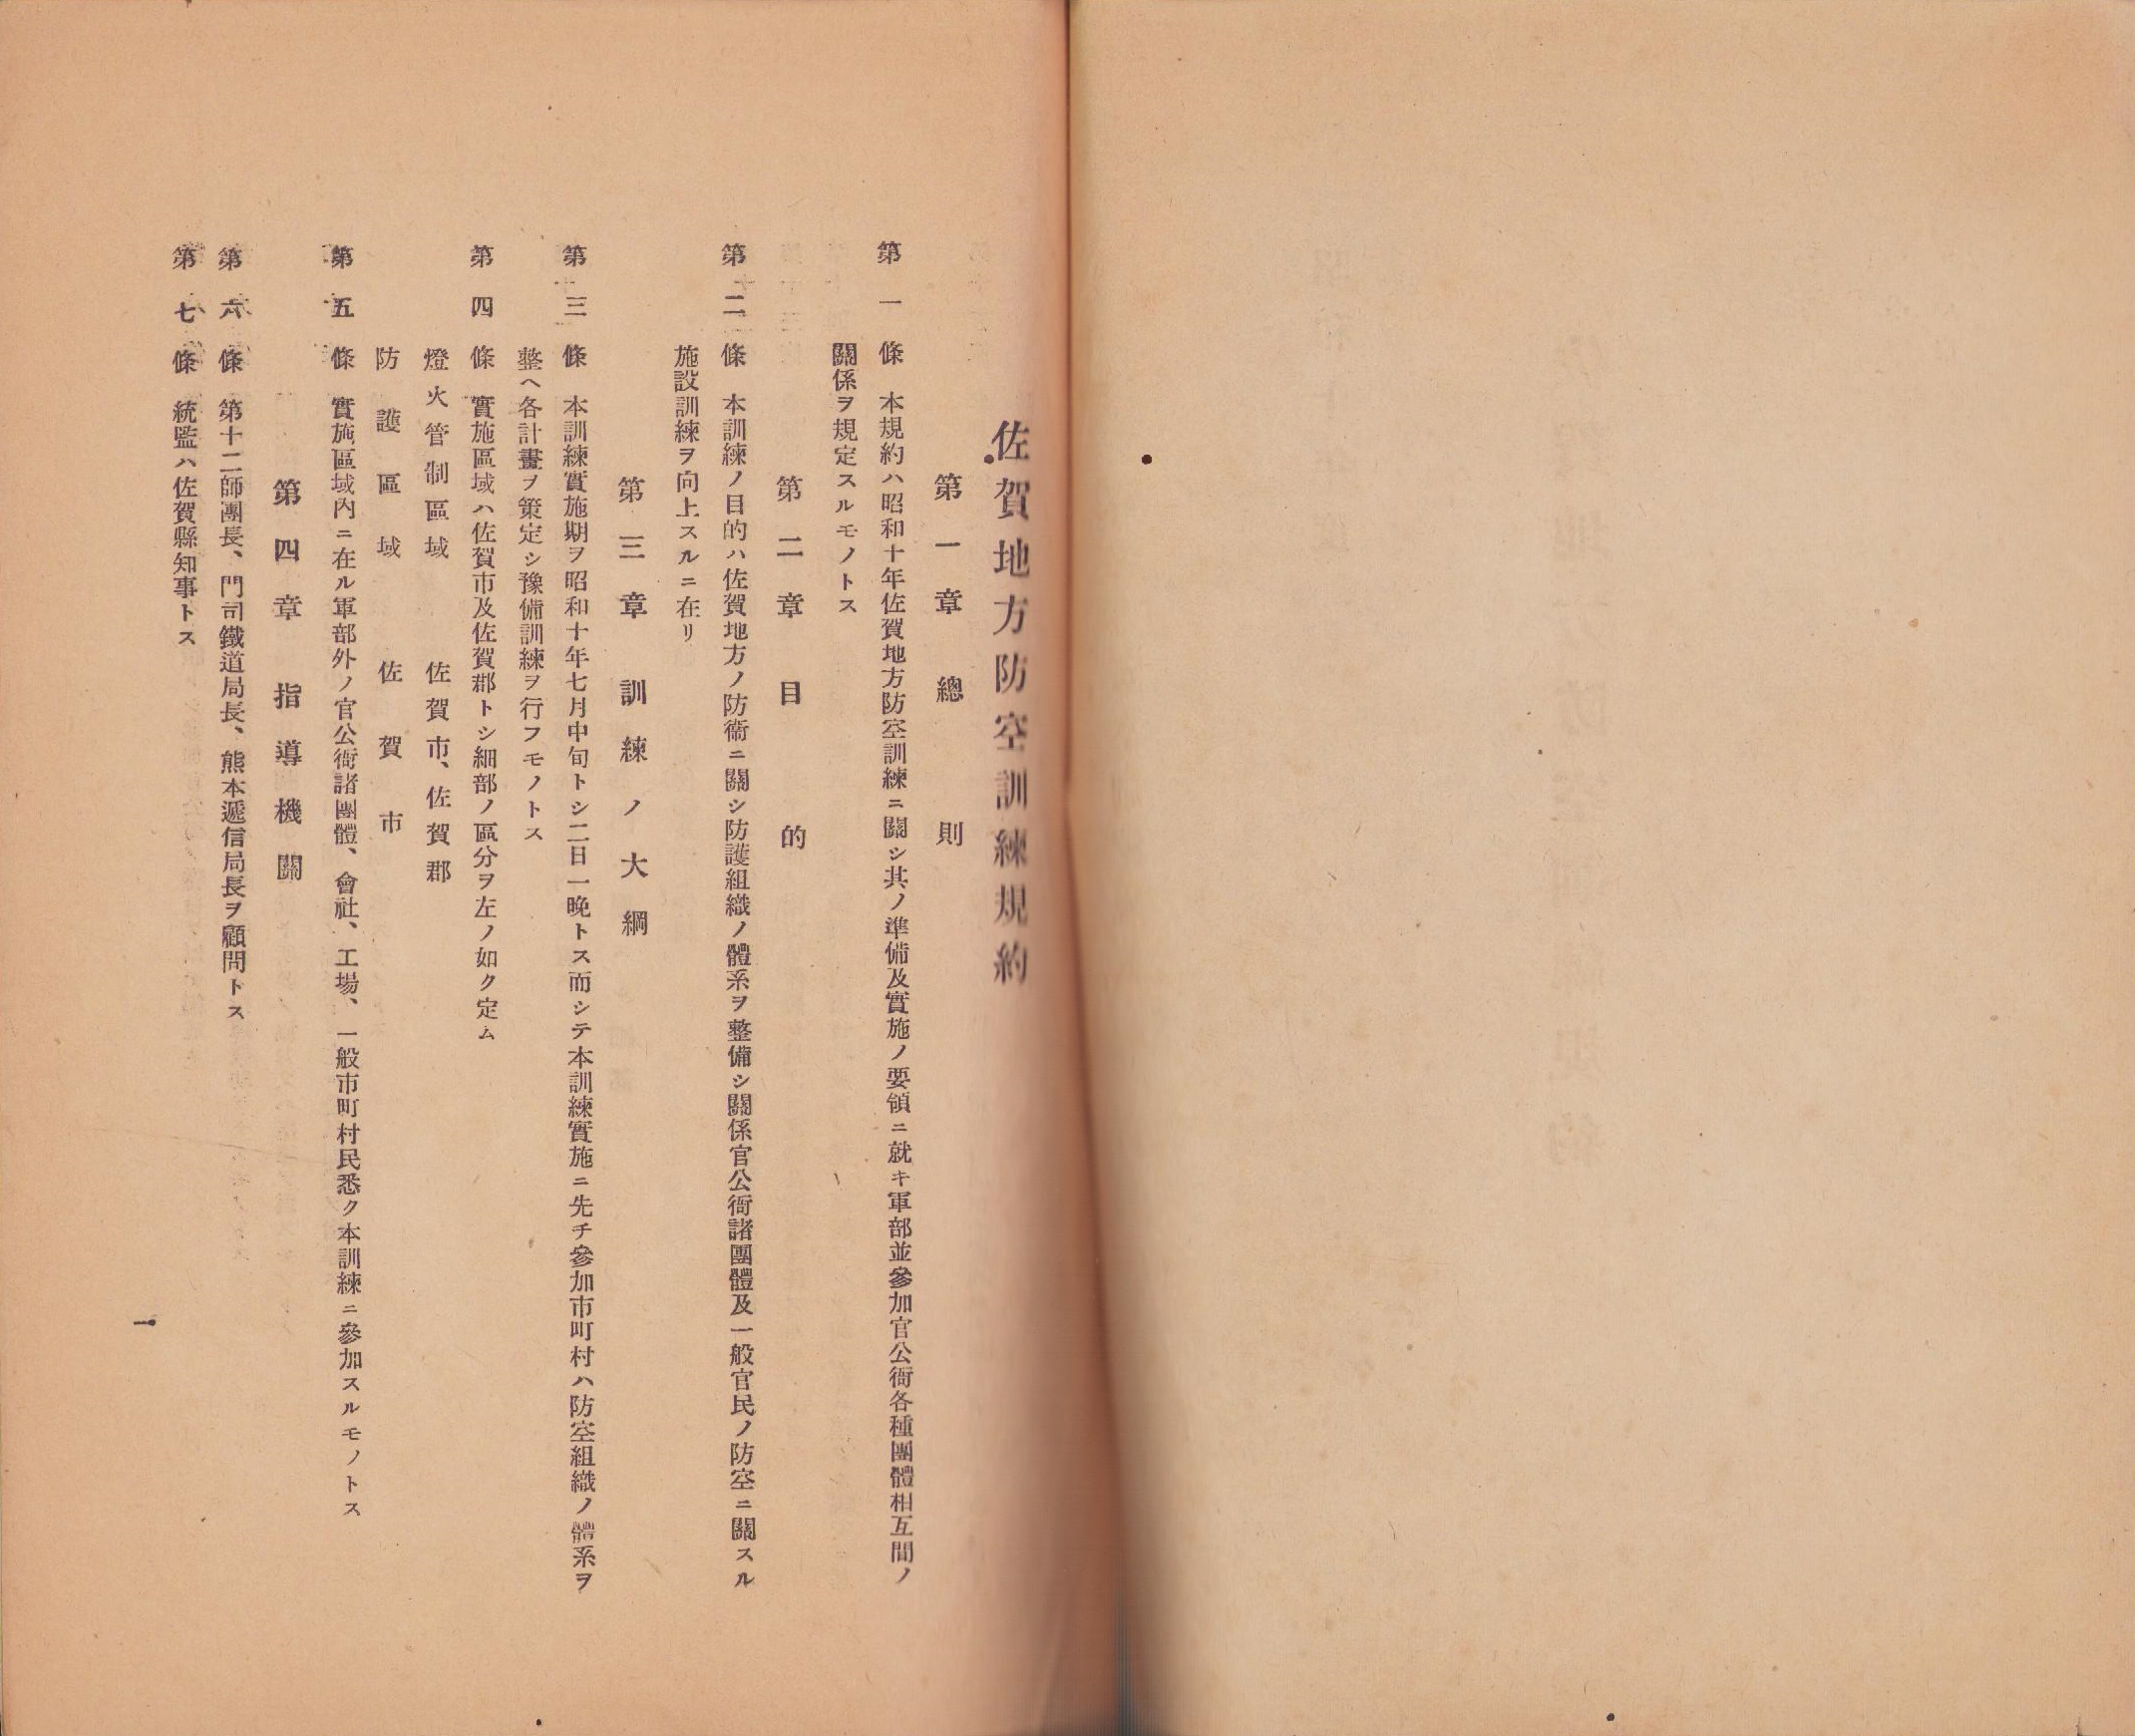 佐賀地方防空訓練規約
第一章 總則
第一條 本規約ハ昭和十年佐賀地方防空訓練ニ關シ其ノ準備及實施ノ要領ニ就キ軍部並參加官公衙各種團體相互間ノ
關係ヲ規定スルモノトス
第二章 目的
第二條 本訓練ノ目的ハ佐賀地方ノ防衞ニ關シ防護組織ノ體系ヲ整備シ關係官公衙諸團體及一般官民ノ防空ニ關スル
施設訓練ヲ向上スルニ在リ
第三章 訓練ノ大綱
第三條 本訓練實施期ヲ昭和十年七月中旬トシ二日一晩トス而シテ本訓練實施ニ先チ參加市町村ハ防空組織ノ體系ヲ
整ヘ各計畫ヲ策定シ豫備訓練ヲ行フモノトス
第四條 實施區域ハ佐賀市及佐賀郡トシ細部ノ區分ヲ左ノ如ク定ム
燈火管制區域 佐賀市、佐賀郡
防護區域 佐賀市
第五條 實施區域內ニ在ル軍部外ノ官公衙諸團體、會社、工場、一般市町村民悉ク本訓練ニ參加スルモノトス
第四章 指導機關
第六條 第十二師團長、門司鐵道局長、熊本遞信局長ヲ顧問トス
第七條 統監ハ佐賀縣知事トス
一